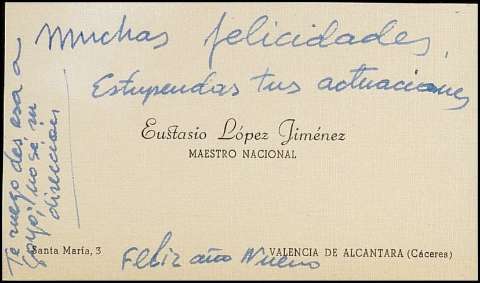 Muchas felicidades,
Estupendas tus actuaciones
Eustasio López Jiménez
MAESTRO NACIONAL
Santa María, 3
VALENCIA DE ALCANTARA (Cáceres)
Feliz año Nuevo
Te ruego des esa a
Goyo, no sé su
dirección